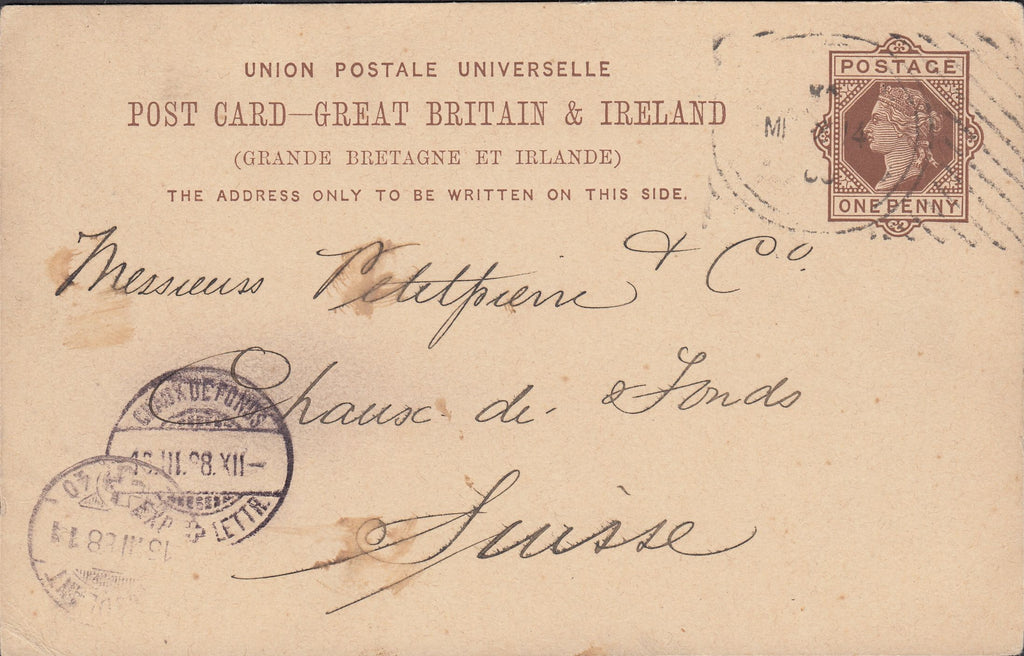 UNION POSTALE UNIVERSELLE
POST CARD—GREAT BRITAIN & IRELAND
(GRANDE BRETAGNE ET IRLANDE)
THE ADDRESS ONLY TO BE WRITTEN ON THIS SIDE.
POSTAGE
ONE PENNY
14
Messieurs Petitpierre & Co.
Chaux-de-Fonds
Suisse
CHAUX DE FONDS
III.88.XII—
LETTR.
EXP